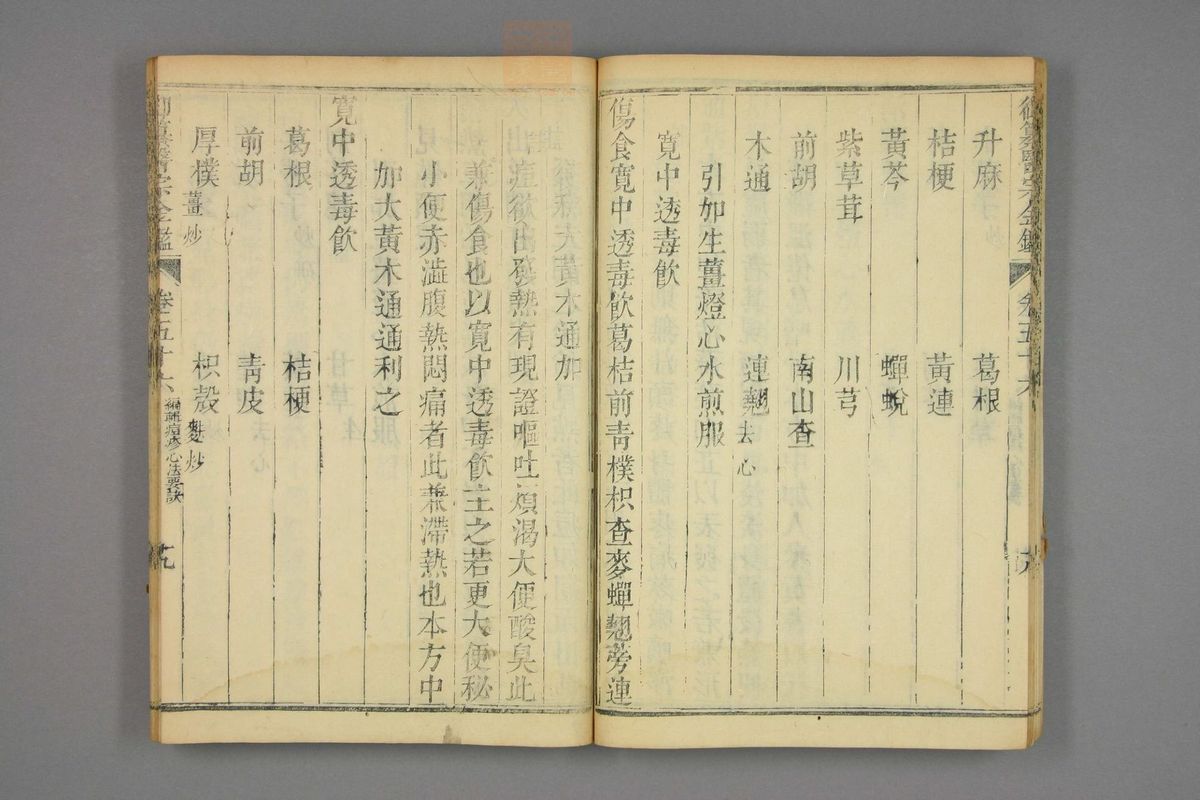 御纂醫宗金鑑 卷五十六
升麻 葛根
桔梗 黃連
黃芩 蟬蛻
紫草茸 川芎
前胡 南山查
木通 連翹去心
引加生薑燈心水煎服
寬中透毒飲
傷食寬中透毒飲葛桔前青樸枳查麥蟬翹蒡連
大黃木通加
痘欲出發熱有現證嘔吐煩渴大便酸臭此
兼傷食也以寬中透毒飲主之若更大便秘
小便赤澁腹熱悶痛者此兼滯熱也本方中
加大黃木通通利之
寬中透毒飲
葛根 桔梗
前胡 青皮
厚樸薑炒 枳殼麩炒
御纂醫宗金鑑 卷五十六 編輯痘疹心法要訣 十九